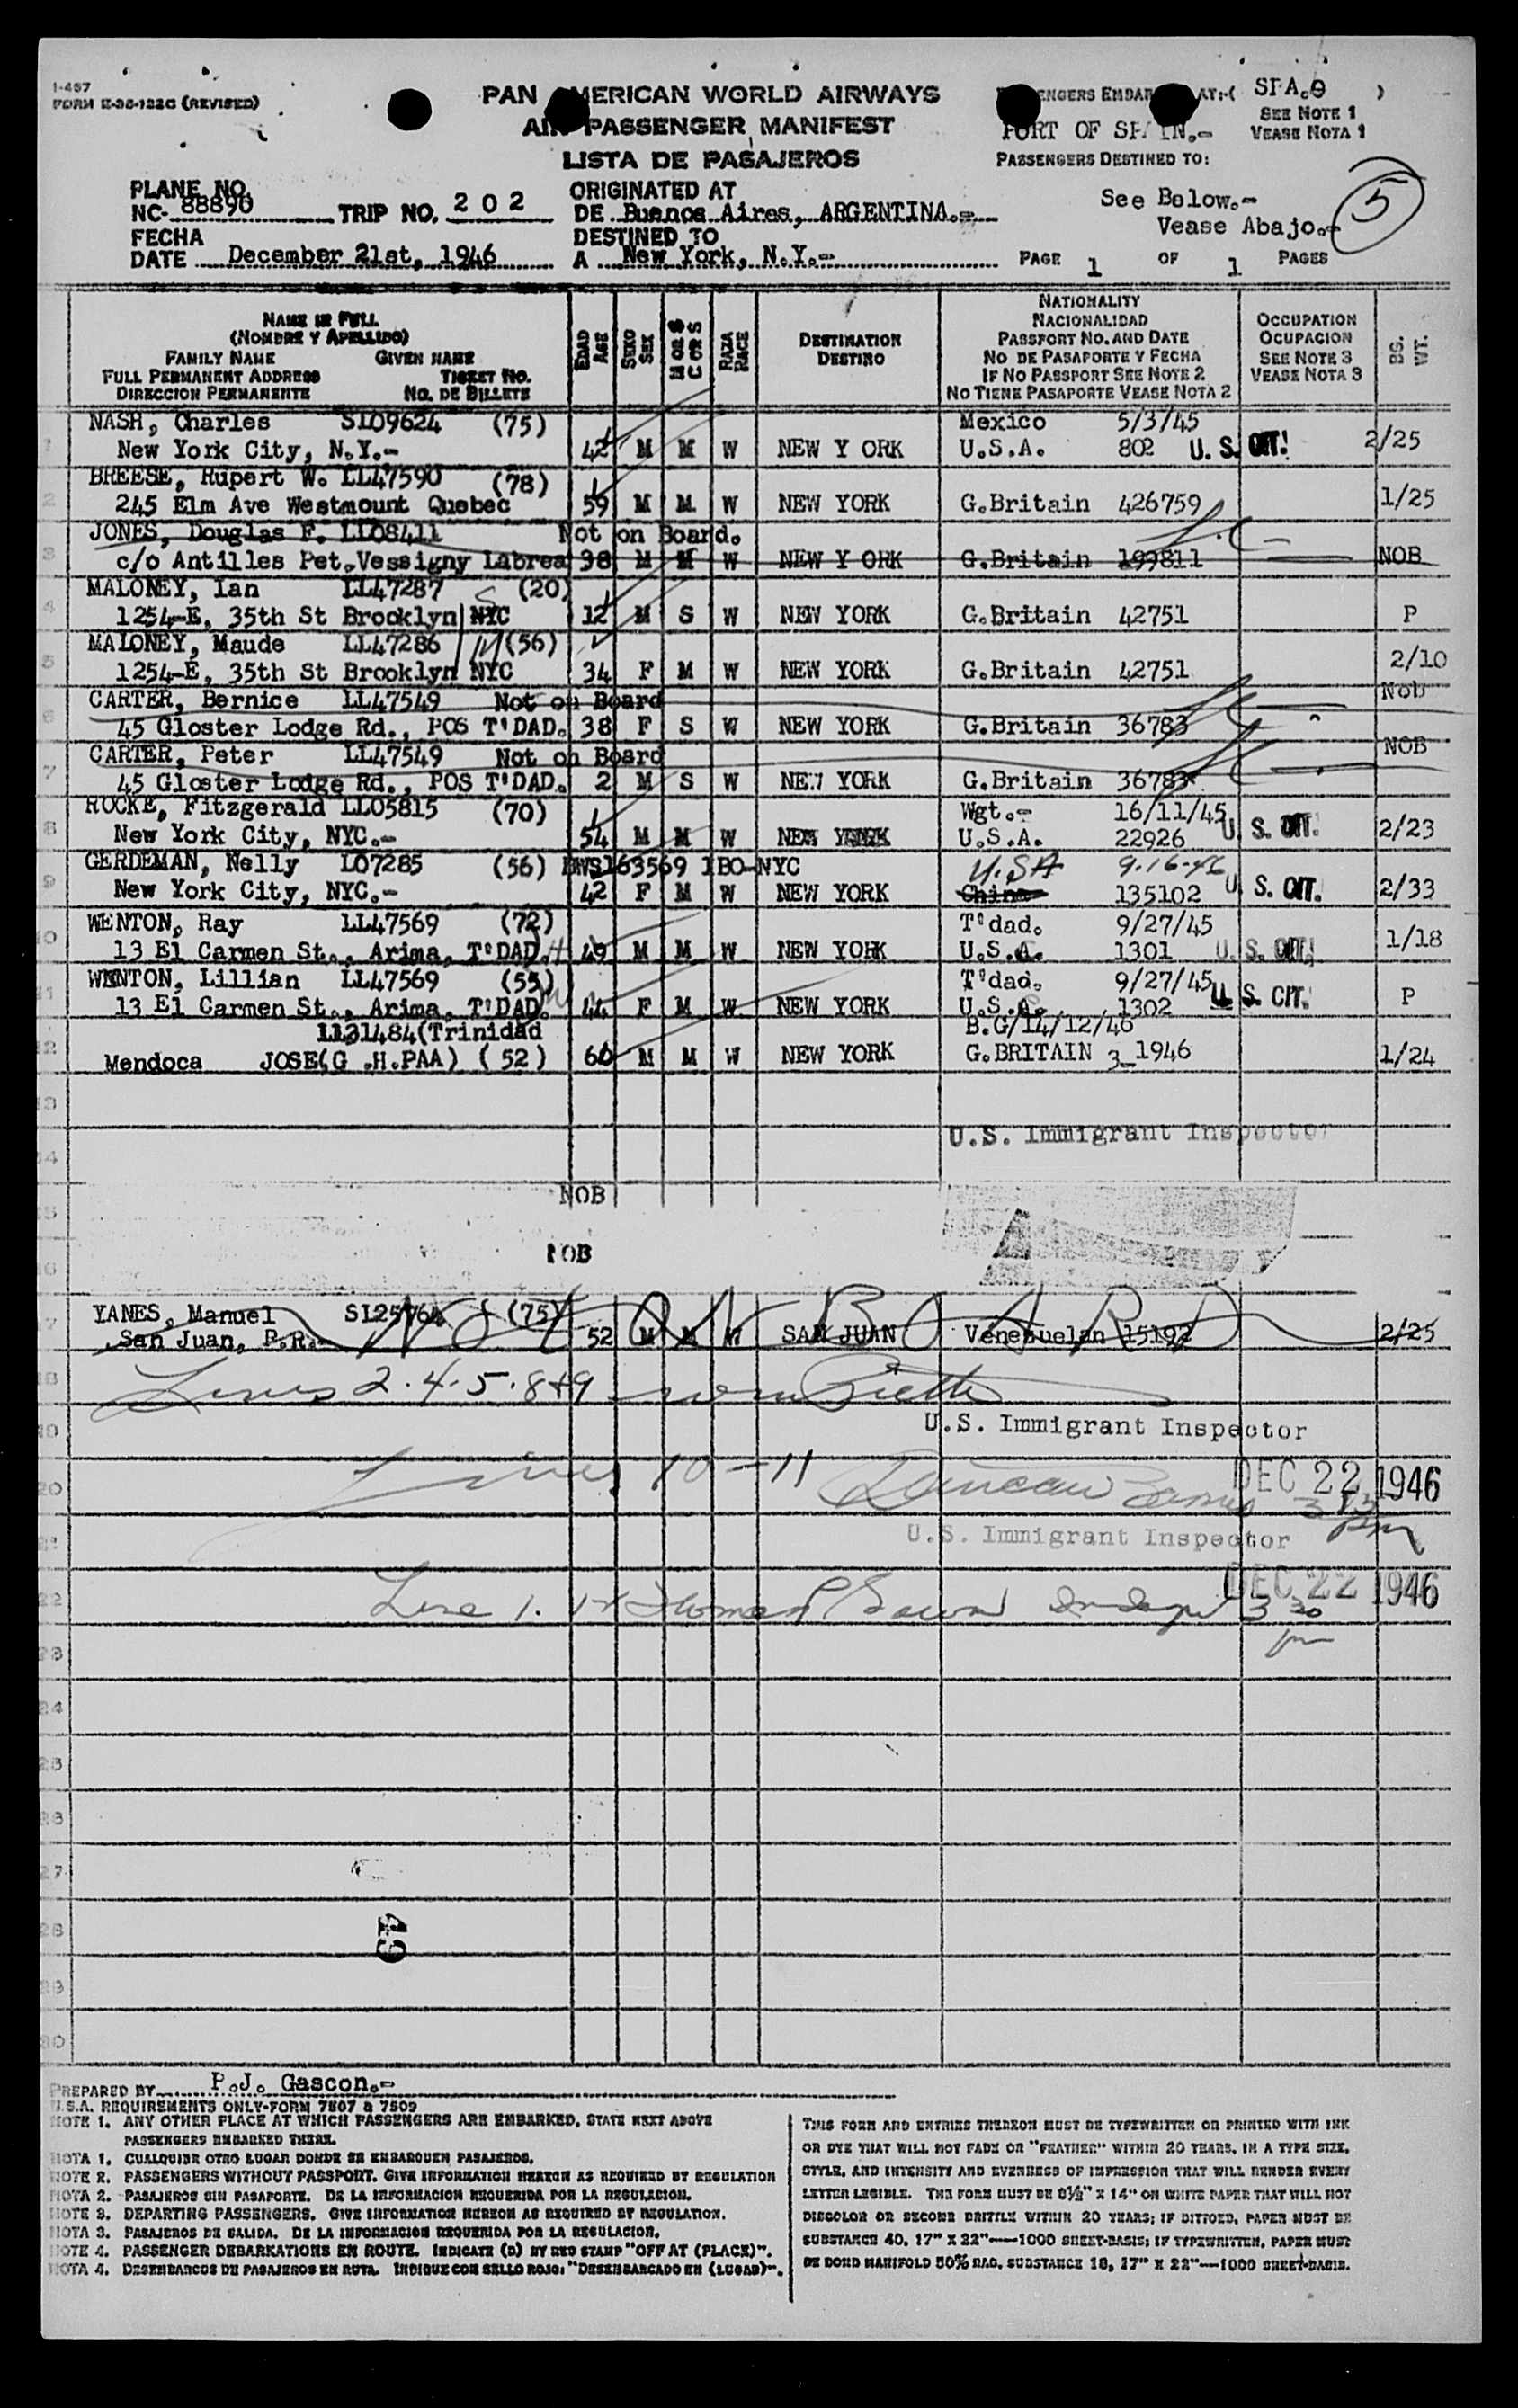 I-457
FORM E-38-122C (REVISED)
PAN AMERICAN WORLD AIRWAYS
AIR PASSENGER MANIFEST
LISTA DE PASAJEROS
AT:-( SPA.9 )
PORT OF SPAIN.-
SEE NOTE 1
VEASE NOTA 1
PASSENGERS DESTINED TO:
See Below.-
Vease Abajo.-
5
PLANE NO.
NC- 88890 TRIP NO. 2 0 2
ORIGINATED AT
DE Buenos Aires, ARGENTINA.-
FECHA
DATE December 21st, 1946
DESTINED TO
A New York, N.Y.-
PAGE 1 OF 1 PAGES
NAME IN FULL
(NOMBRE Y APELLIDO)
FAMILY NAME GIVEN NAME
FULL PERMANENT ADDRESS TICKET NO.
DIRECCION PERMANENTE NO. DE BILLETE
EDAD AGE
SEXO SEX
M OR S
C OR S
RAZA RACE
DESTINATION
DESTINO
NATIONALITY
NACIONALIDAD
PASSPORT NO. AND DATE
NO DE PASAPORTE Y FECHA
IF NO PASSPORT SEE NOTE 2
NO TIENE PASAPORTE VEASE NOTA 2
OCCUPATION
OCUPACION
SEE NOTE 3
VEASE NOTA 3
BG. WT.
NASH, Charles SL09624 (75) Mexico 5/3/45
1 New York City, N.Y.- 42 M M W NEW Y ORK U.S.A. 802 U. S. CIT! 2/25
BREESE, Rupert W. LL47590 (78)
2 245 Elm Ave Westmount Quebec 59 M M W NEW YORK G.Britain 426759 1/25
JONES, Douglas F. LL08411 Not on Board.
3 c/o Antilles Pet.Vessigny Labrea 38 M M W NEW Y ORK G.Britain 199811 NOB
MALONEY, Ian LL47287 S (20)
4 1254-E, 35th St Brooklyn NYC 12 M S W NEW YORK G.Britain 42751 P
MALONEY, Maude LL47286 M (56)
5 1254-E, 35th St Brooklyn NYC 34 F M W NEW YORK G.Britain 42751 2/10
CARTER, Bernice LL47549 Not on Board Nob
6 45 Gloster Lodge Rd., POS T'DAD. 38 F S W NEW YORK G.Britain 36783
CARTER, Peter LL47549 Not on Board NOB
7 45 Gloster Lodge Rd., POS T'DAD. 2 M S W NEW YORK G.Britain 36783
ROCKE, Fitzgerald LL05815 (70) Wgt.- 16/11/45
8 New York City, NYC.- 54 M M W NEW YORK U.S.A. 22926 U. S. CIT. 2/23
GERDEMAN, Nelly L07285 (56) BWS163569 IBO-NYC U.S.A 9-16-46
9 New York City, NYC.- 42 F M W NEW YORK China 135102 U. S. CIT. 2/33
WENTON, Ray LL47569 (72) T'dad. 9/27/45
10 13 El Carmen St., Arima, T'DAD. H 49 M M W NEW YORK U.S.A. 1301 U. S. CIT. 1/18
WENTON, Lillian LL47569 (55) T'dad. 9/27/45
11 13 El Carmen St., Arima, T'DAD. 44 F M W NEW YORK U.S.A. 1302 U. S. CIT. P
1131484(Trinidad B.G/14/12/46
12 Mendoca JOSE(G .H.PAA) ( 52 ) 66 M M W NEW YORK G.BRITAIN 3 1946 1/24
13
U.S. Immigrant Inspector
14
NOB
15
NOB
16
YANES, Manuel (75)
17 San Juan, P.R.- 52 M M W SAN JUAN Venezuelan 15192 2/25
NOT ON BOARD
18 Lines 2.4.5.8+9
19 U.S. Immigrant Inspector
20 Lines 10-11 Duncan DEC 22 1946
21 U.S. Immigrant Inspector 3 pm
22 Line 1. DEC 22 1946
3 30
pm
23
24
25
26
27
28
49
29
30
PREPARED BY P.J. Gascon.-
U.S.A. REQUIREMENTS ONLY-FORM 7507 & 7509
NOTE 1. ANY OTHER PLACE AT WHICH PASSENGERS ARE EMBARKED, STATE NEXT ABOVE
PASSENGERS EMBARKED THERE.
NOTA 1. CUALQUIER OTRO LUGAR DONDE SE EMBARQUEN PASAJEROS.
NOTE 2. PASSENGERS WITHOUT PASSPORT. GIVE INFORMATION HEREON AS REQUIRED BY REGULATION
NOTA 2. PASAJEROS SIN PASAPORTE. DE LA INFORMACION REQUERIDA POR LA REGULACION.
NOTE 3. DEPARTING PASSENGERS. GIVE INFORMATION HEREON AS REQUIRED BY REGULATION.
NOTA 3. PASAJEROS DE SALIDA. DE LA INFORMACION REQUERIDA POR LA REGULACION.
NOTE 4. PASSENGER DEBARKATIONS EN ROUTE. INDICATE (D) BY RED STAMP "OFF AT (PLACE)".
NOTA 4. DESEMBARCOS DE PASAJEROS EN RUTA. INDIQUE CON SELLO ROJO: "DESEMBARCADO EN (LUGAR)".
THIS FORM AND ENTRIES THEREON MUST BE TYPEWRITTEN OR PRINTED WITH INK
OR DYE THAT WILL NOT FADE OR "FEATHER" WITHIN 20 YEARS, IN A TYPE SIZE,
STYLE, AND INTENSITY AND EVENNESS OF IMPRESSION THAT WILL RENDER EVERY
LETTER LEGIBLE. THE FORM MUST BE 8½" X 14" ON WHITE PAPER THAT WILL NOT
DISCOLOR OR BECOME BRITTLE WITHIN 20 YEARS; IF DITTOED, PAPER MUST BE
SUBSTANCE 40, 17" X 22"—1000 SHEET-BASIS; IF TYPEWRITTEN, PAPER MUST
BE BOND MANIFOLD 50% RAG, SUBSTANCE 18, 17" X 22"—1000 SHEET-BASIS.